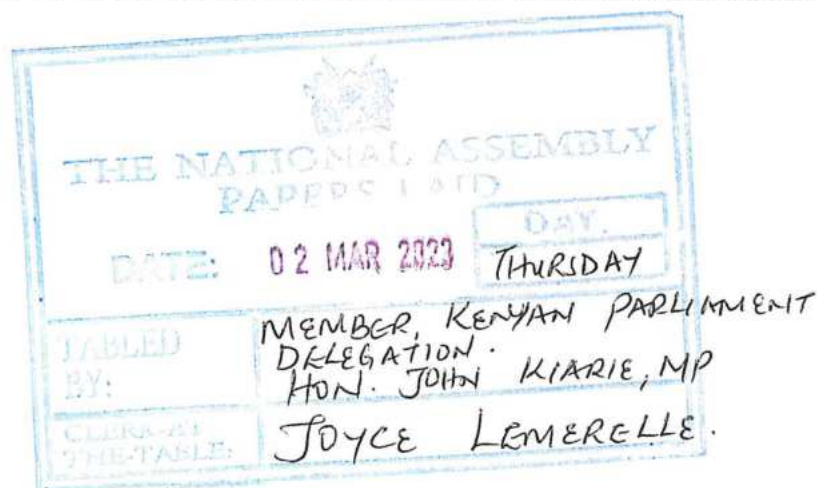 THE NATIONAL ASSEMBLY
PAPERS LAID
DAY.
DATE: 02 MAR 2023 THURSDAY
TABLED BY: MEMBER, KENYAN PARLIAMENT
DELEGATION.
HON. JOHN KIARIE, MP
CLERK-AT THE-TABLE: JOYCE LEMERELLE.